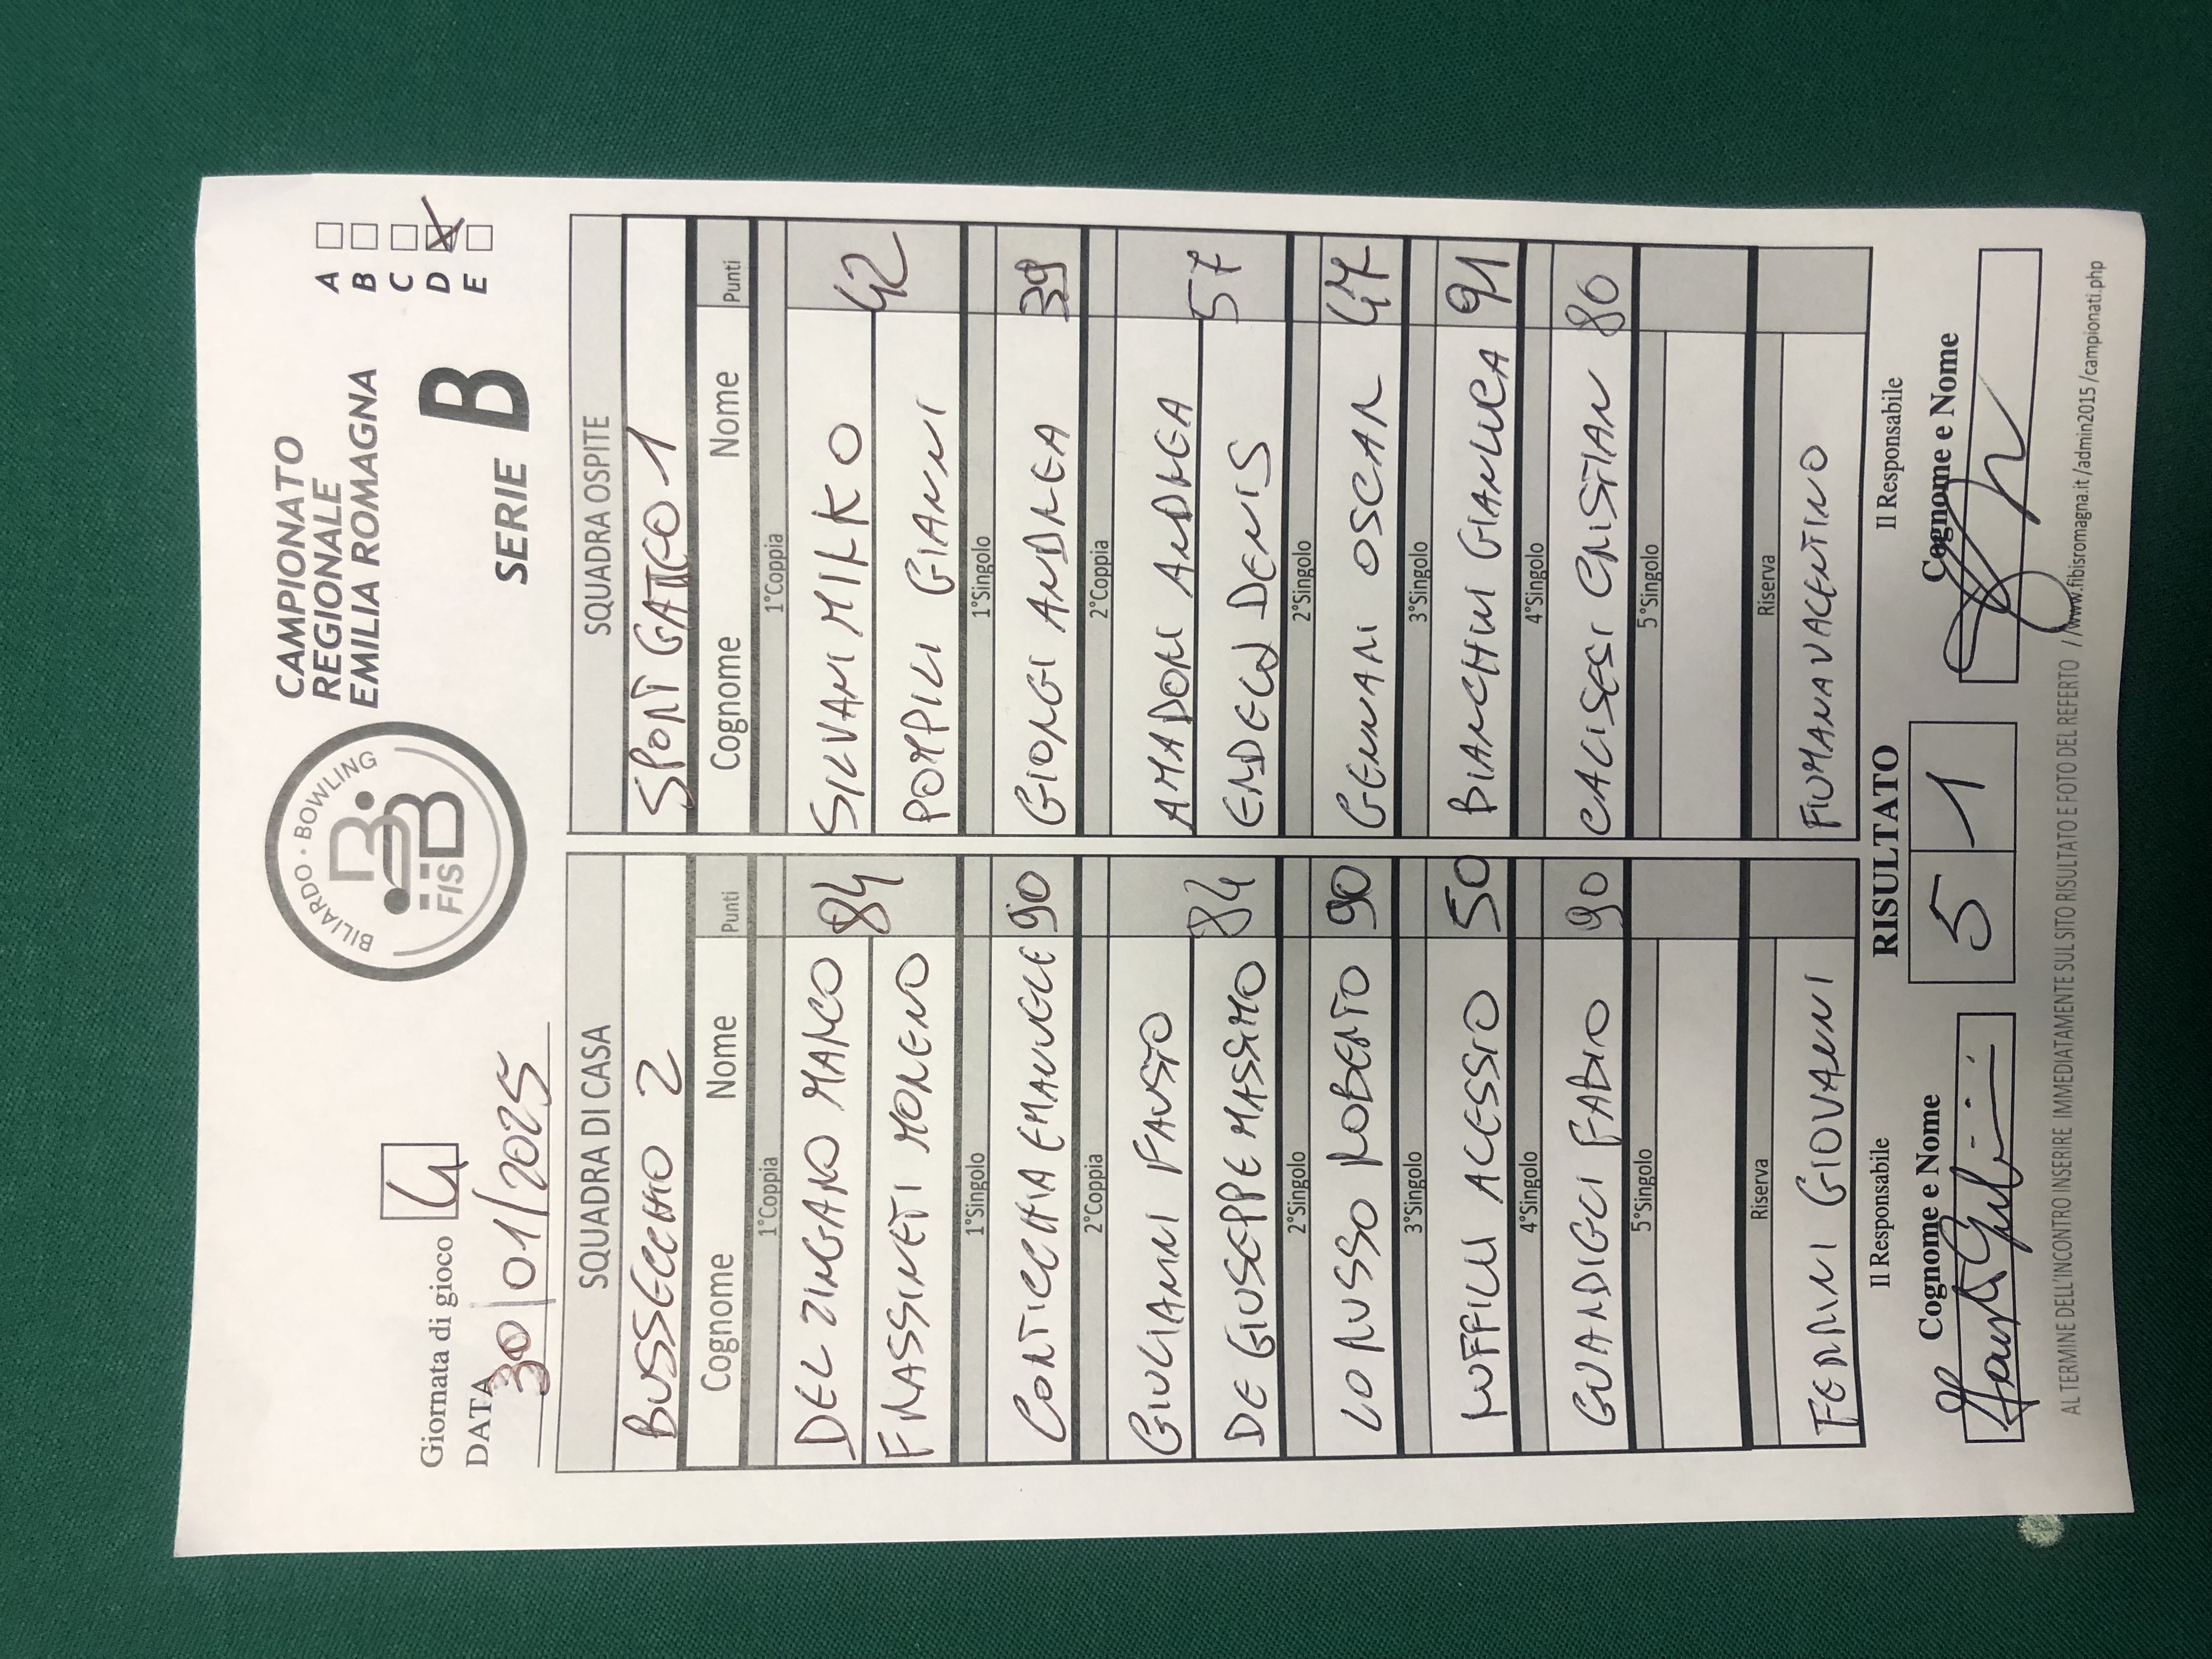 BILIARDO · BOWLING
FISBB
CAMPIONATO
REGIONALE
EMILIA ROMAGNA
SERIE B
A
B
C
D
E
Giornata di gioco 4
DATA 30/01/2025
SQUADRA DI CASA SQUADRA OSPITE
BUSSECCHIO 2 SPORT GATTEO 1
Cognome Nome Punti Cognome Nome Punti
1°Coppia 1°Coppia
DEL ZINGARO MARCO 84 SILVANI MILKO 42
FRASSINETI MORENO POMPILI GIANNI
1°Singolo 1°Singolo
CORTICCHIA EMANUELE 90 GIORGI ANDREA 39
2°Coppia 2°Coppia
GIULIANINI FAUSTO 84 AMADORI ANDREA 57
DE GIUSEPPE MASSIMO DENIS
2°Singolo 2°Singolo
LO RUSSO ROBERTO 90 GENNARI OSCAR 47
3°Singolo 3°Singolo
RUFFILLI ALESSIO 50 BIANCHINI GIANLUCA 91
4°Singolo 4°Singolo
GUARDIGLI FABIO 90 CALISESI CRISTIAN 80
5°Singolo 5°Singolo
Riserva Riserva
FERRINI GIOVANNI FIUMANA VALENTINO
Il Responsabile RISULTATO Il Responsabile
Cognome e Nome 5 1 Cognome e Nome
AL TERMINE DELL'INCONTRO INSERIRE IMMEDIATAMENTE SUL SITO RISULTATO E FOTO DEL REFERTO //www.fibisromagna.it/admin2015/campionati.php